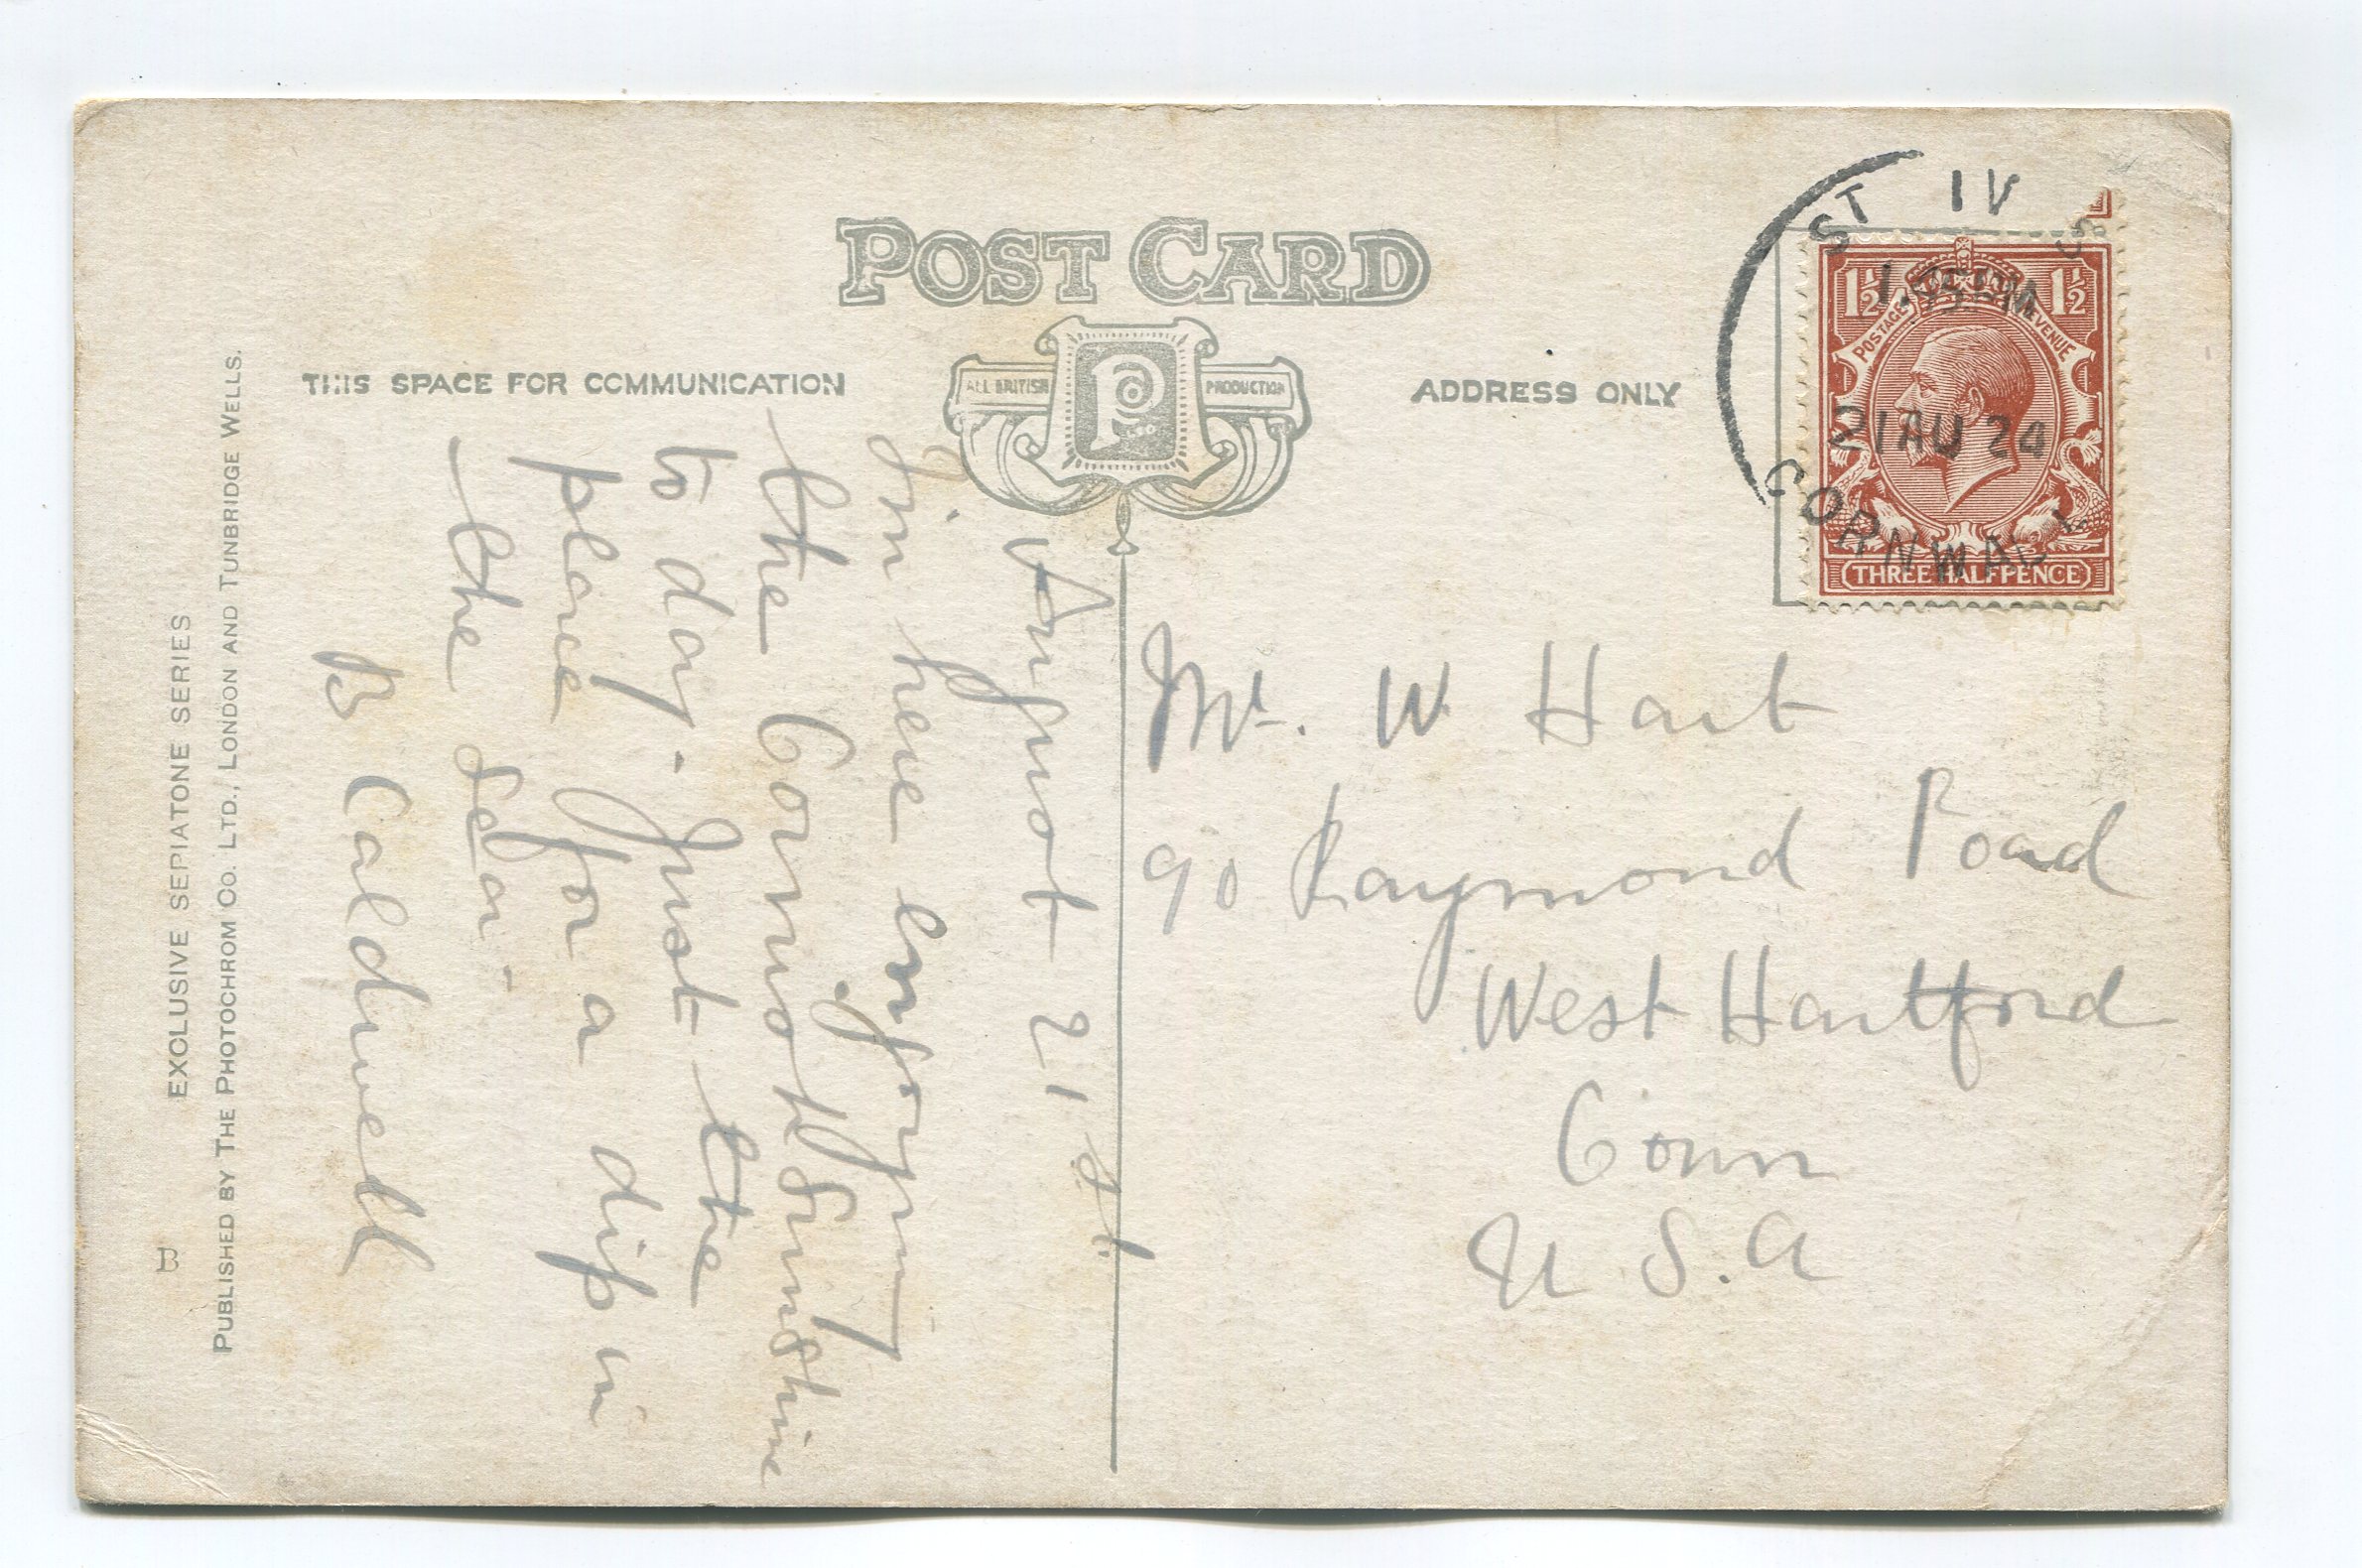 POST CARD
THIS SPACE FOR COMMUNICATION
ALL BRITISH
PRODUCTION
P Co
ADDRESS ONLY
August 21st.
I'm here enjoying
the Cornish Sunshine
to day. Just the
place for a dip in
the sea.
B Caldwell
Mr. W Hart
90 Raymond Road
West Hartford
Conn
U.S.A
ST IV S
1.45 PM
21 AU 24
CORNWALL
1½ 1½
POSTAGE REVENUE
THREE HALFPENCE
EXCLUSIVE SEPIATONE SERIES
PUBLISHED BY THE PHOTOCHROM CO. LTD., LONDON AND TUNBRIDGE WELLS.
B